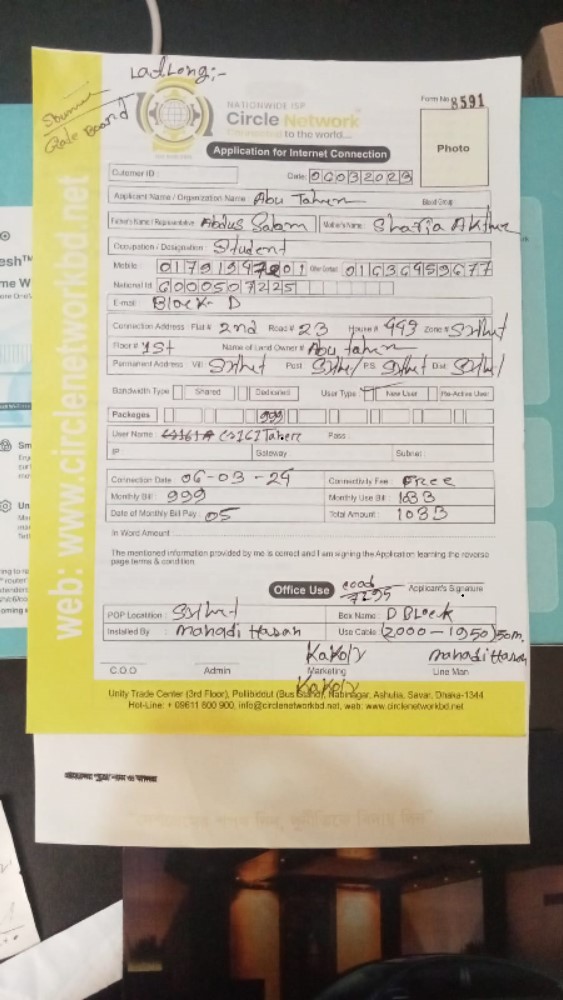 LatLong:-
NATIONWIDE ISP
Circle Network
Connected to the world...
Form No 8591
Application for Internet Connection
Photo
Customer ID :
Date: 06032023
Applicant Name / Organization Name : Abu Taher
Blood Group
Father's Name / Representative : Abdus Salam Mother's Name : Sharifa Akther
Occupation / Designation : Student
Mobile : Other Contact 01636959677
National Id 6000507225
E-mail Block- D
Connection Address : Flat # 2nd Road # 23 House # 449 Zone #
Floor # 1st Name of Land Owner # Abu taher
Permanent Address : Vill Post P.S Dist
Bandwidth Type Shared Dedicated User Type New User Re-Active User
Packages 999
User Name : Pass :
IP Gateway Subnet :
Connection Date 06-03-24 Connectivity Fee : Free
Monthly Bill : 999 Monthly Use Bill :
Date of Monthly Bill Pay : 05 Total Amount :
In Word Amount :
The mentioned information provided by me is correct and I am signing the Application learning the reverse
page terms & condition.
Office Use Applicant's Signature
POP Location : Box Name : D Block
Installed By : Mahadi Hasan Use Cable (2000 - 1950) 50m.
Mahadi Hasan
C.O.O Admin Marketing Line Man
Unity Trade Center (3rd Floor), Pollibiddut (Bus Stand), Nabinagar, Ashulia, Savar, Dhaka-1344
Hot-Line: + 09611 800 900, info@circlenetworkbd.net, web: www.circlenetworkbd.net
web: www.circlenetworkbd.net